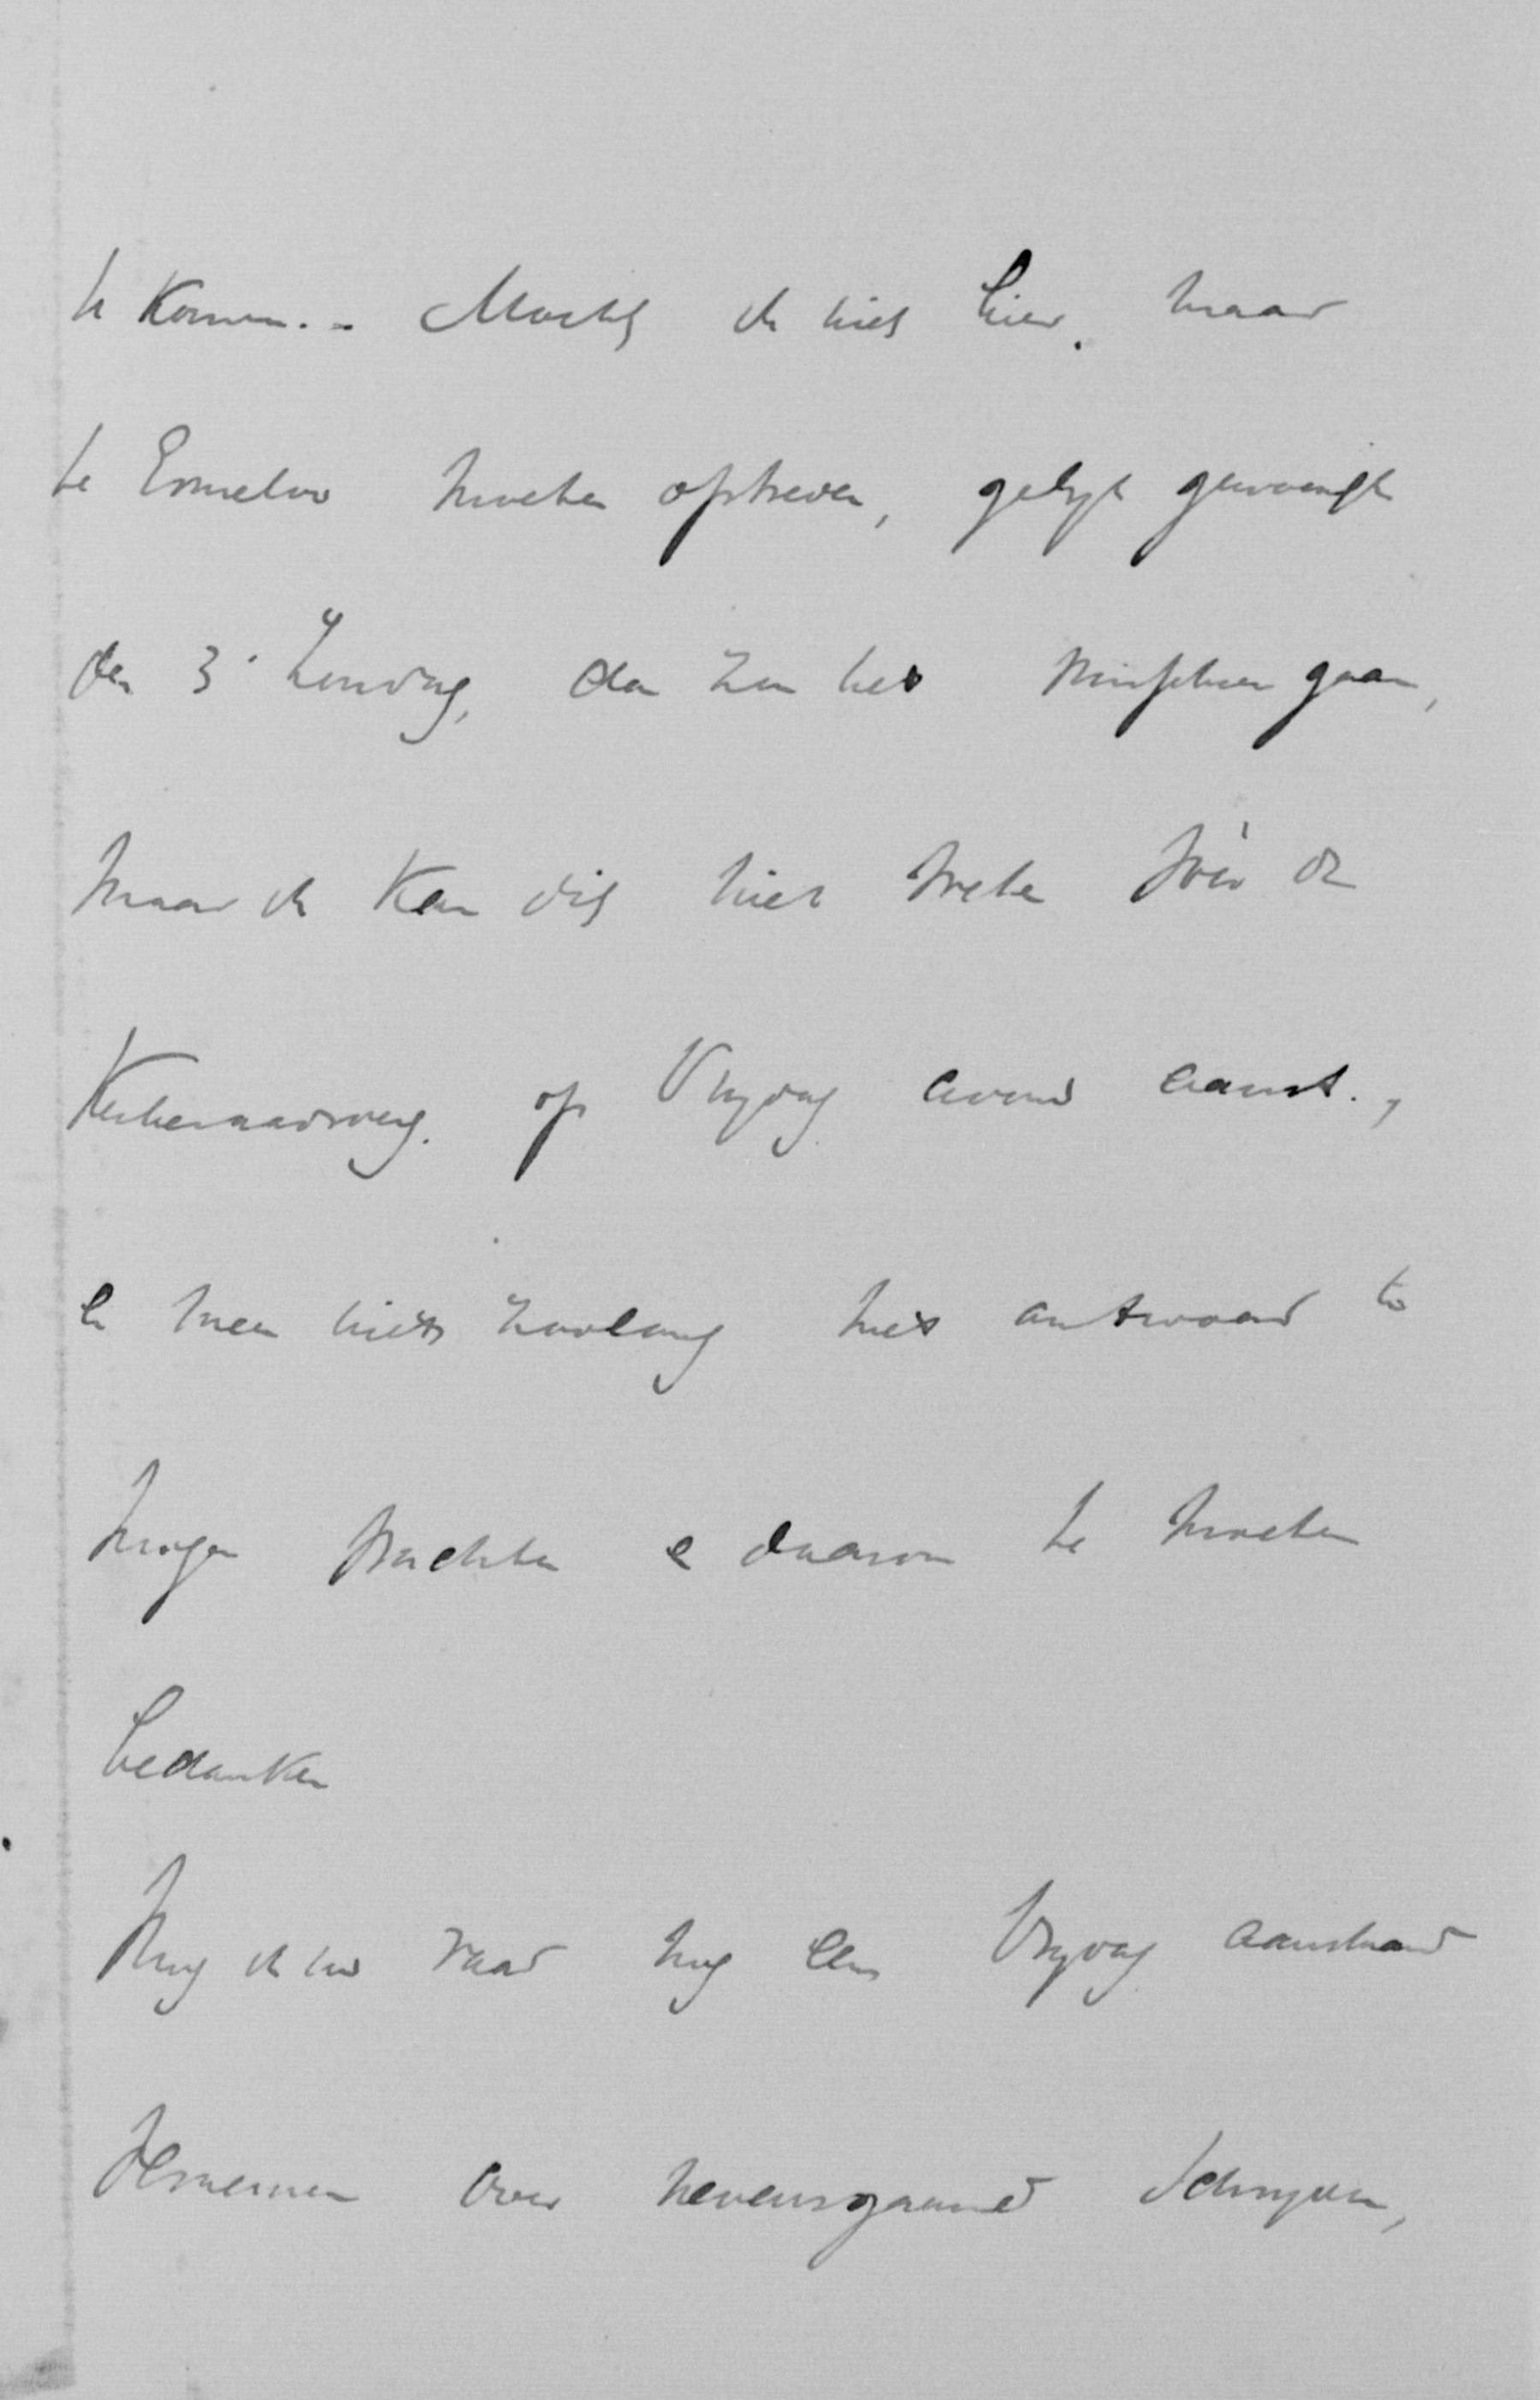 te komen. - Mocht ik niet hier, maar
te Ermelo moeten optreden, gelyk gewoonlyk
den 3e Zondag, dan zou het misschien gaan,
maar ik kan dit niet weten vóór de
Kerkeraadsverg. op Vrydag avond aanst.,
en meen niet zoolang met antwoord te
mogen wachten en daarom te moeten
bedanken
Mag ik uw raad nog eens Vrydag aanstaand
vernemen over nevensgaand schryven,